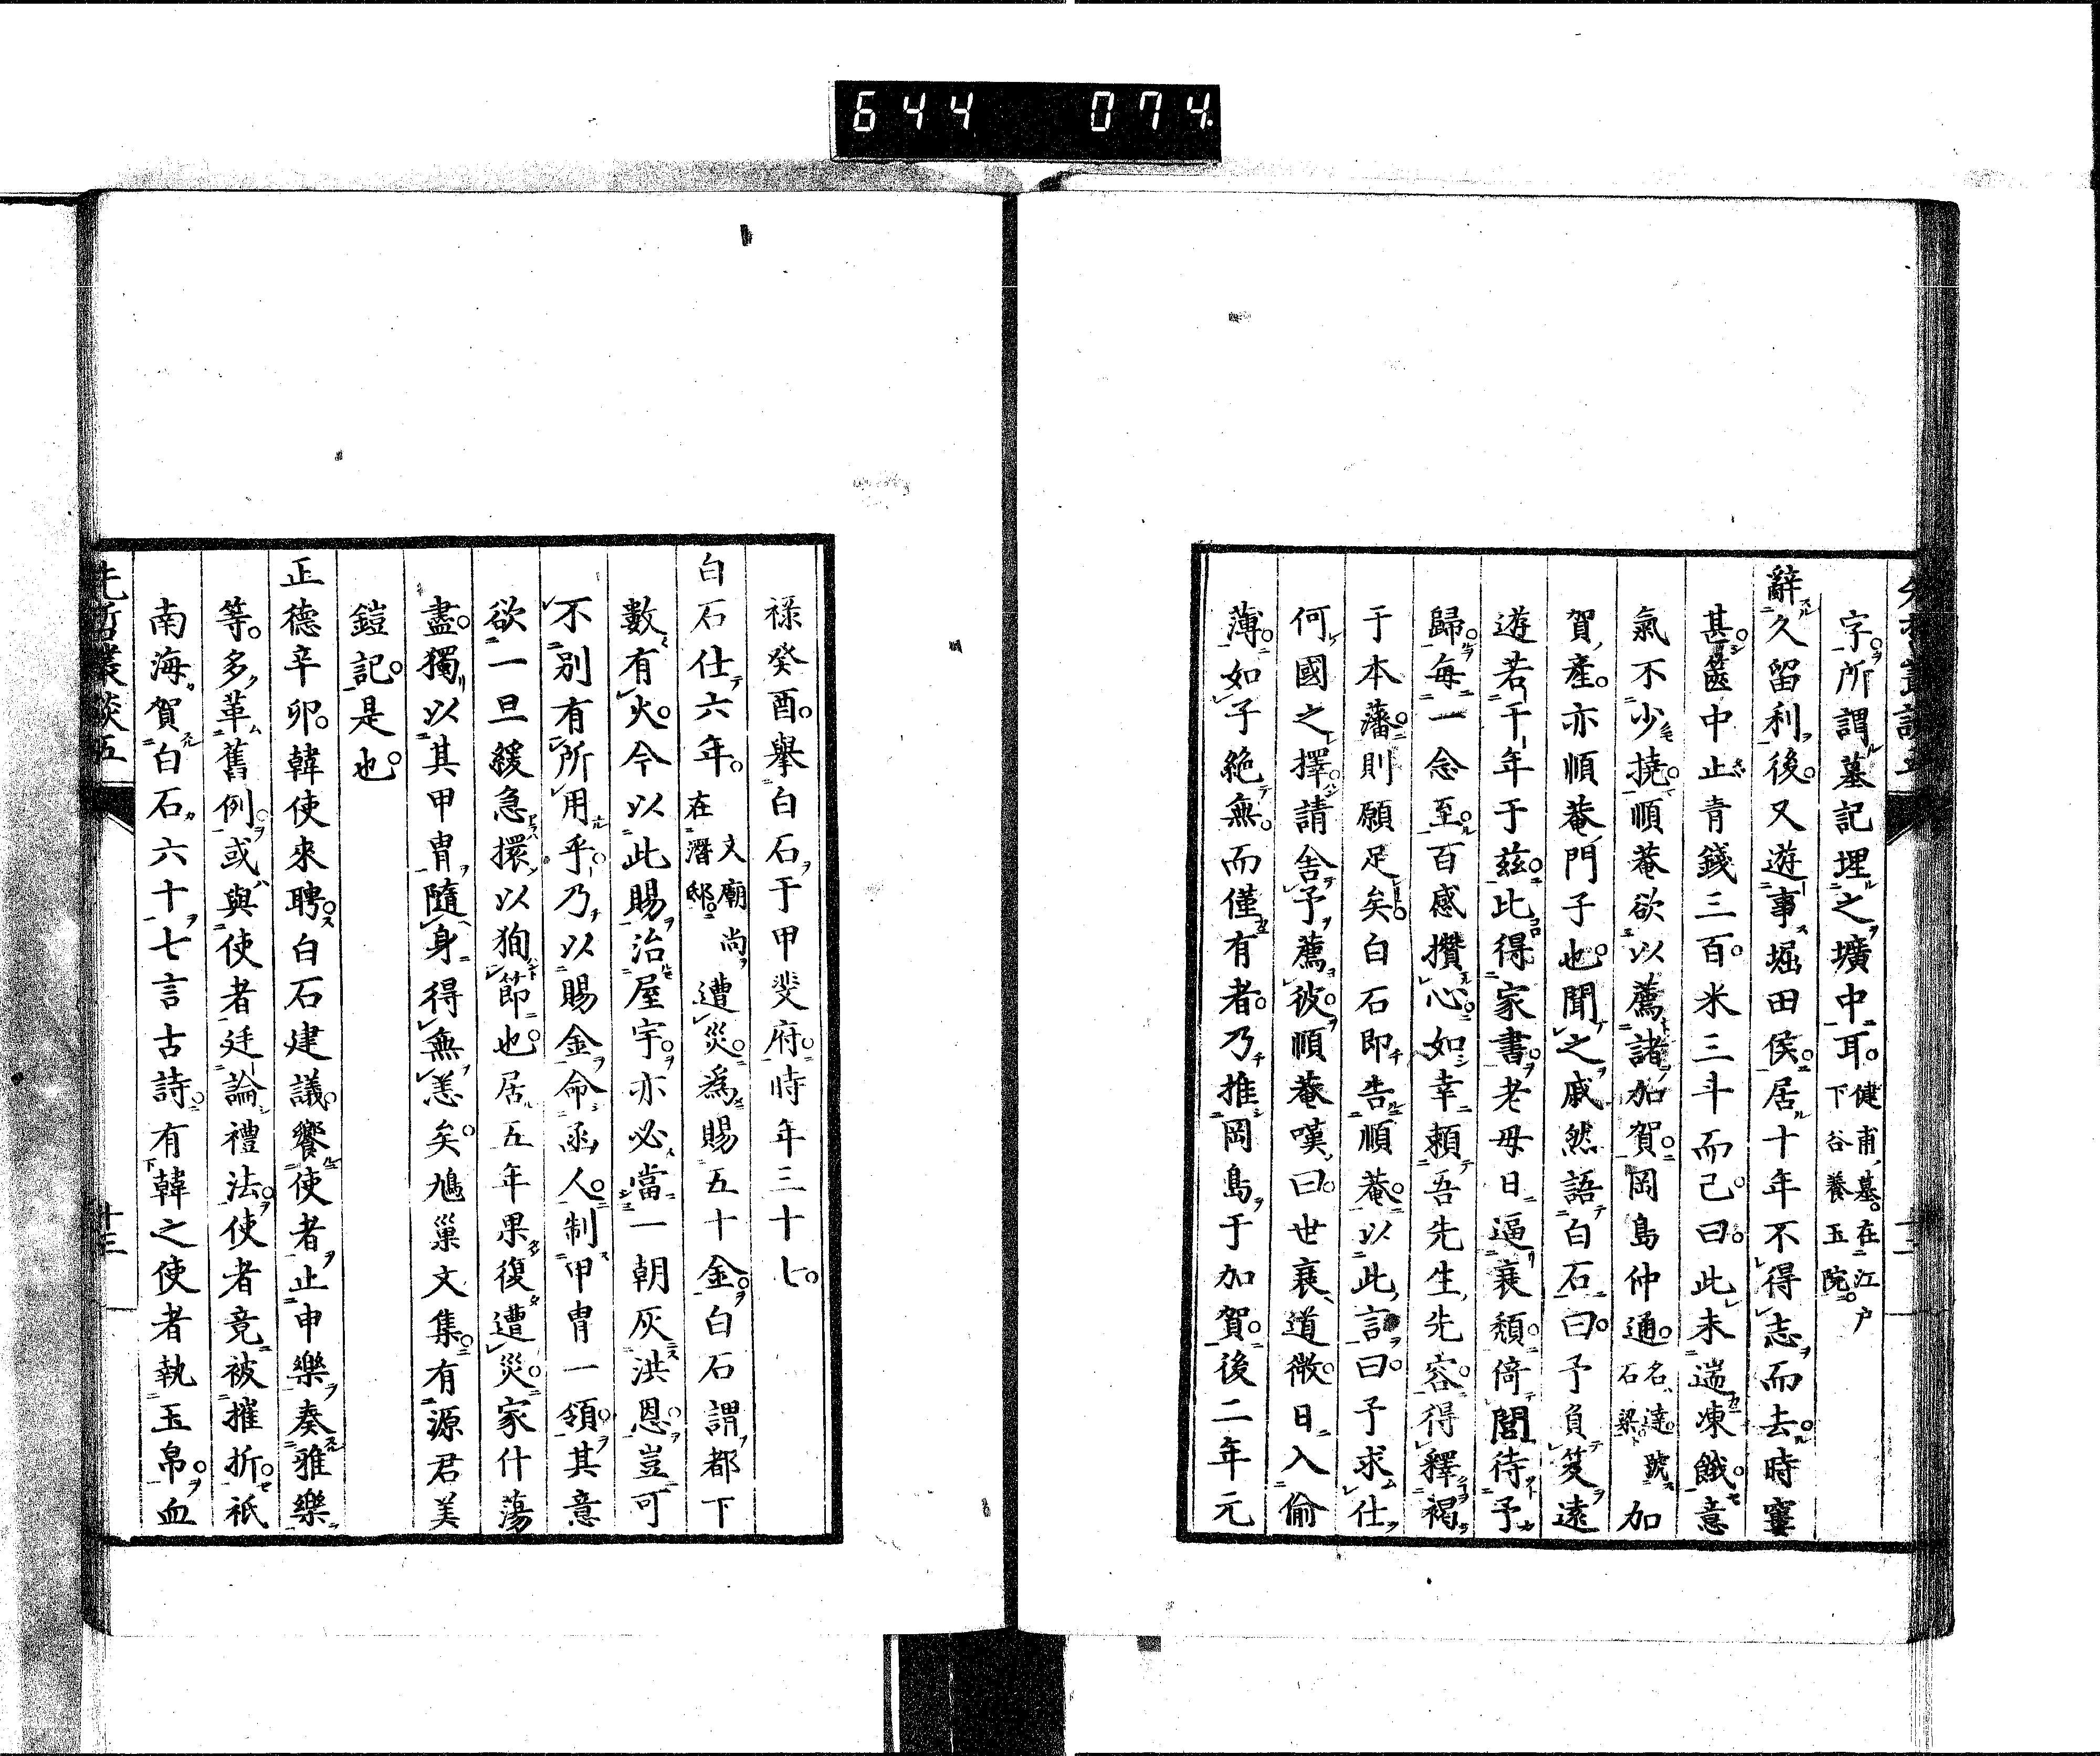 644 074
字所謂墓記埋之壙中耳健甫墓在江戶下谷養玉院
辭久留利後又遊事堀田侯居十年不得志而去時窶
甚篋中止青錢三百米三斗而已曰此未遄凍餓意
氣不少撓順菴欲以薦諸加賀岡島仲通名達號石梁加
賀產亦順菴門子也聞之戚然語白石曰予負笈遠
遊若干年于茲此得家書老母日逼衰頽倚閭待予
歸每一念至百感攢心如幸賴吾先生先容得釋褐
于本藩則願足矣白石即告順菴以此言曰予求仕
何國之擇請舍予薦彼順菴嘆曰世衰道微日入偷
薄如子絕無而僅有者乃推岡島于加賀後二年元
祿癸酉舉白石于甲斐府時年三十七
白石仕六年文廟尚在潛邸遭災爲賜五十金白石謂都下
數有火今以此賜治屋宇亦必當一朝灰洪恩豈可
不別有所用乎乃以賜金命函人制甲冑一領其意
欲一旦緩急擐以狥節也居五年果復遭災家什蕩
盡獨以其甲冑隨身得無恙矣鳩巢文集有源君美
鎧記是也
正德辛卯韓使來聘白石建議饗使者止申樂奏雅樂
等多革舊例或與使者廷論禮法使者竟被摧折祇
南海賀白石六十七言古詩有韓之使者執玉帛血
先哲叢談五
十三